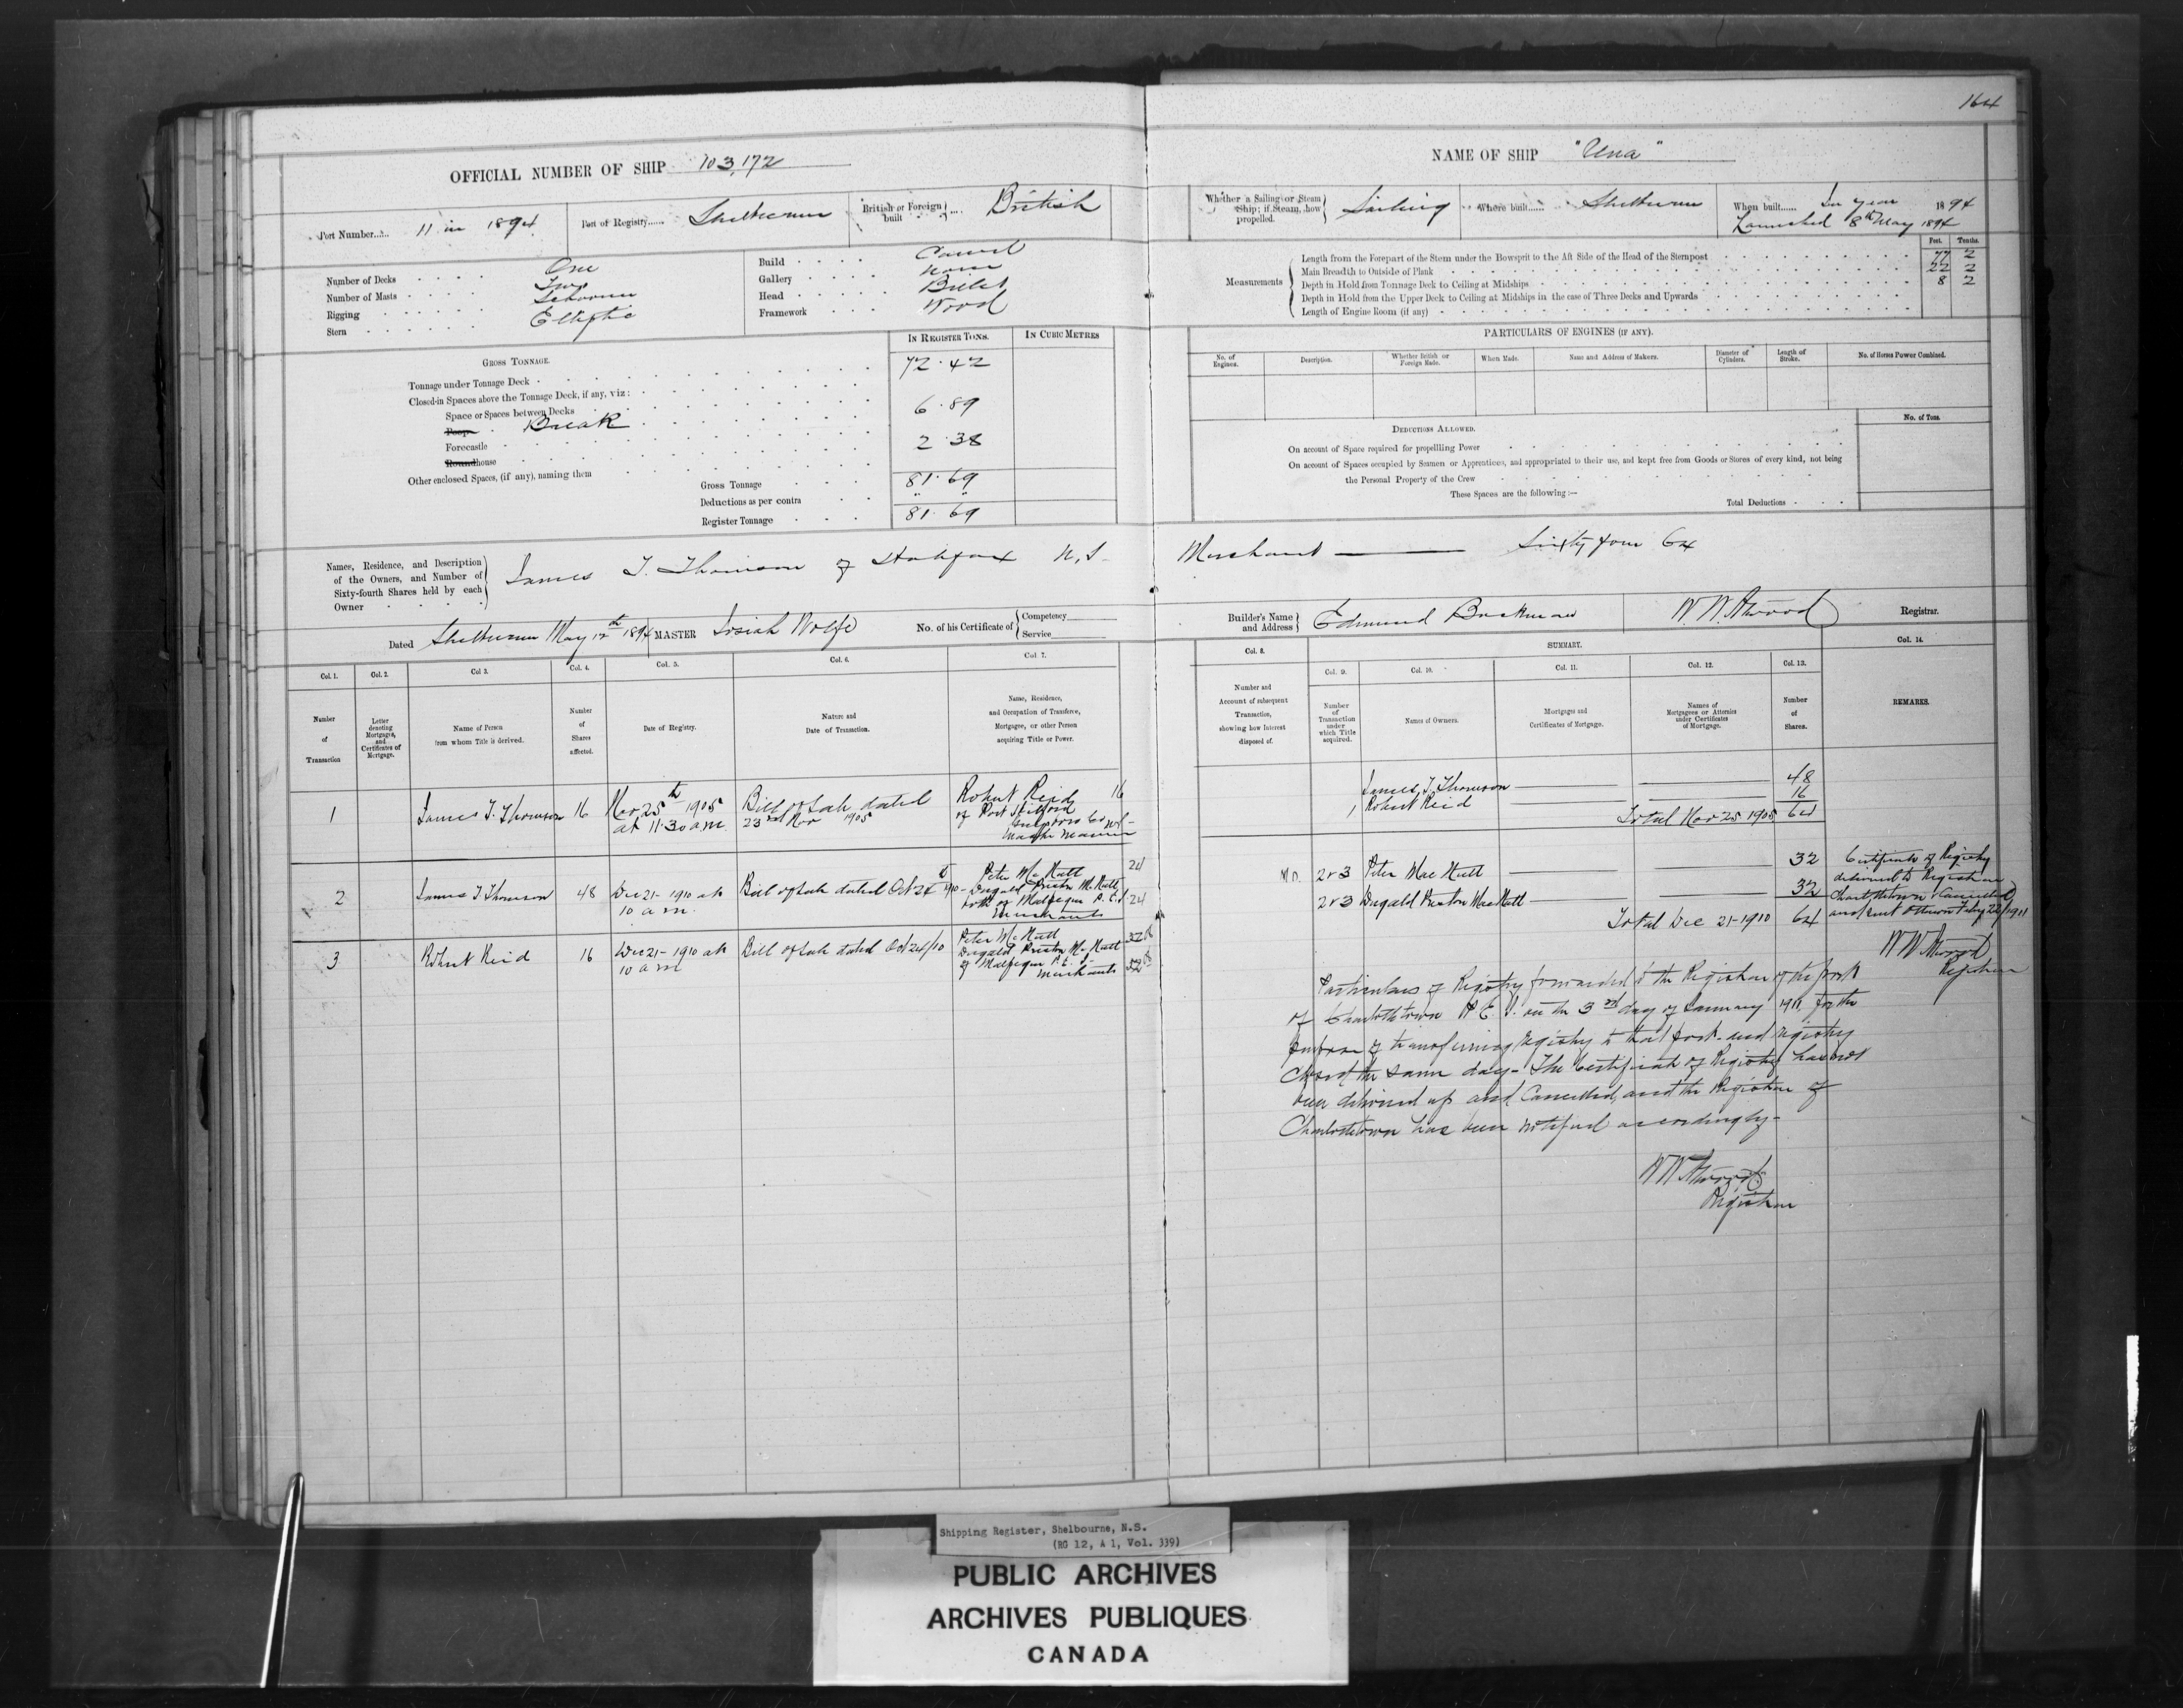 164
OFFICIAL NUMBER OF SHIP 103,172
Port Number 11 in 1894 Port of Registry Shelburne British or Foreign built British
Number of Decks One
Number of Masts Two
Rigging Schooner
Stern Elliptic
Build Carvel
Gallery None
Head Billet
Framework Wood
IN REGISTER TONS. IN CUBIC METRES
GROSS TONNAGE.
Tonnage under Tonnage Deck 72.42
Closed-in Spaces above the Tonnage Deck, if any, viz:
Space or Spaces between Decks
Poop Break 6.89
Forecastle
Roundhouse 2.38
Other enclosed Spaces, (if any), naming them
Gross Tonnage 81.69
Deductions as per contra " "
Register Tonnage 81.69
NAME OF SHIP "Una"
Whether a Sailing or Steam Ship; if Steam, how propelled. Sailing Where built Shelburne When built In year 1894
Launched 8th May 1894
Feet. Tenths.
Measurements
Length from the Forepart of the Stem under the Bowsprit to the Aft Side of the Head of the Sternpost 77 2
Main Breadth to Outside of Plank 22 2
Depth in Hold from Tonnage Deck to Ceiling at Midships 8 2
Depth in Hold from the Upper Deck to Ceiling at Midships in the case of Three Decks and Upwards
Length of Engine Room (if any)
PARTICULARS OF ENGINES (IF ANY).
No. of Engines. Description. Whether British or Foreign Made. When Made. Name and Address of Makers. Diameter of Cylinders. Length of Stroke. No. of Horses Power Combined.
DEDUCTIONS ALLOWED. No. of Tons.
On account of Space required for propellling Power
On account of Spaces occupied by Seamen or Apprentices, and appropriated to their use, and kept free from Goods or Stores of every kind, not being
the Personal Property of the Crew
These Spaces are the following:—
Total Deductions
Names, Residence, and Description of the Owners, and Number of Sixty-fourth Shares held by each Owner
James T. Thomson of Halifax N.S. Merchant Sixty four 64
Dated Shelburne May 12th 1894 MASTER Josiah Wolfe No. of his Certificate of Competency Service
Builder's Name and Address Edmund Buckman W W Atwood Registrar.
Col. 1. Col. 2. Col 3. Col. 4. Col. 5. Col. 6. Col 7.
Number of Transaction
Letter denoting Mortgages, and Certificates of Mortgage.
Name of Person from whom Title is derived.
Number of Shares affected.
Date of Registry.
Nature and Date of Transaction.
Name, Residence, and Occupation of Transferee, Mortgagee, or other Person acquiring Title or Power.
1 James T. Thomson 16 Nov 25th 1905 at 11.30 a.m. Bill of Sale dated 23rd Nov 1905 Robert Reid 16
2 James T Thomson 48 Dec 21- 1910 at 10 a m. Bill of Sale dated Oct 24th 1910 - Peter McNutt 24
Dugald Preston McNutt
both of Malpeque P.E.I 24
Merchants
3 Robert Reid 16 Dec 21- 1910 at 10 a m Bill of Sale dated Oct 24/10 Peter McNutt
Dugald Preston McNutt
of Malpeque P.E.I-
Merchants
Col. 8. SUMMARY. Col. 14.
Col. 9. Col. 10. Col. 11. Col. 12. Col. 13.
Number and Account of subsequent Transaction, showing how Interest disposed of.
Number of Transaction under which Title acquired.
Names of Owners.
Mortgages and Certificates of Mortgage.
Names of Mortgagees or Attornies under Certificates of Mortgage.
Number of Shares.
REMARKS.
James T. Thomson 48
1 Robert Reid 16
Total Nov 25 1905 64
2 & 3 Peter MacNutt 32
2 & 3 Dugald Preston MacNutt 32
Total Dec 21-1910 64
Certificate of Registry
delivered to Registrar
Charlottetown & Cancelled
and sent Ottawa Feby 22/1911
W W Atwood
Registrar
Particulars of Registry forwarded to the Registrar of the port
of Charlottetown P.E.I. on the 3rd day of January 1911 for the
purpose of transferring registry to that port- and registry
closed the same day- The Certificate of Registry has not
been delivered up and Cancelled, and the Registrar of
Charlottetown has been notified accordingly-
W W Atwood
Registrar
Shipping Register, Shelbourne, N.S.
(RG 12, A 1, Vol. 339)
PUBLIC ARCHIVES
ARCHIVES PUBLIQUES
CANADA